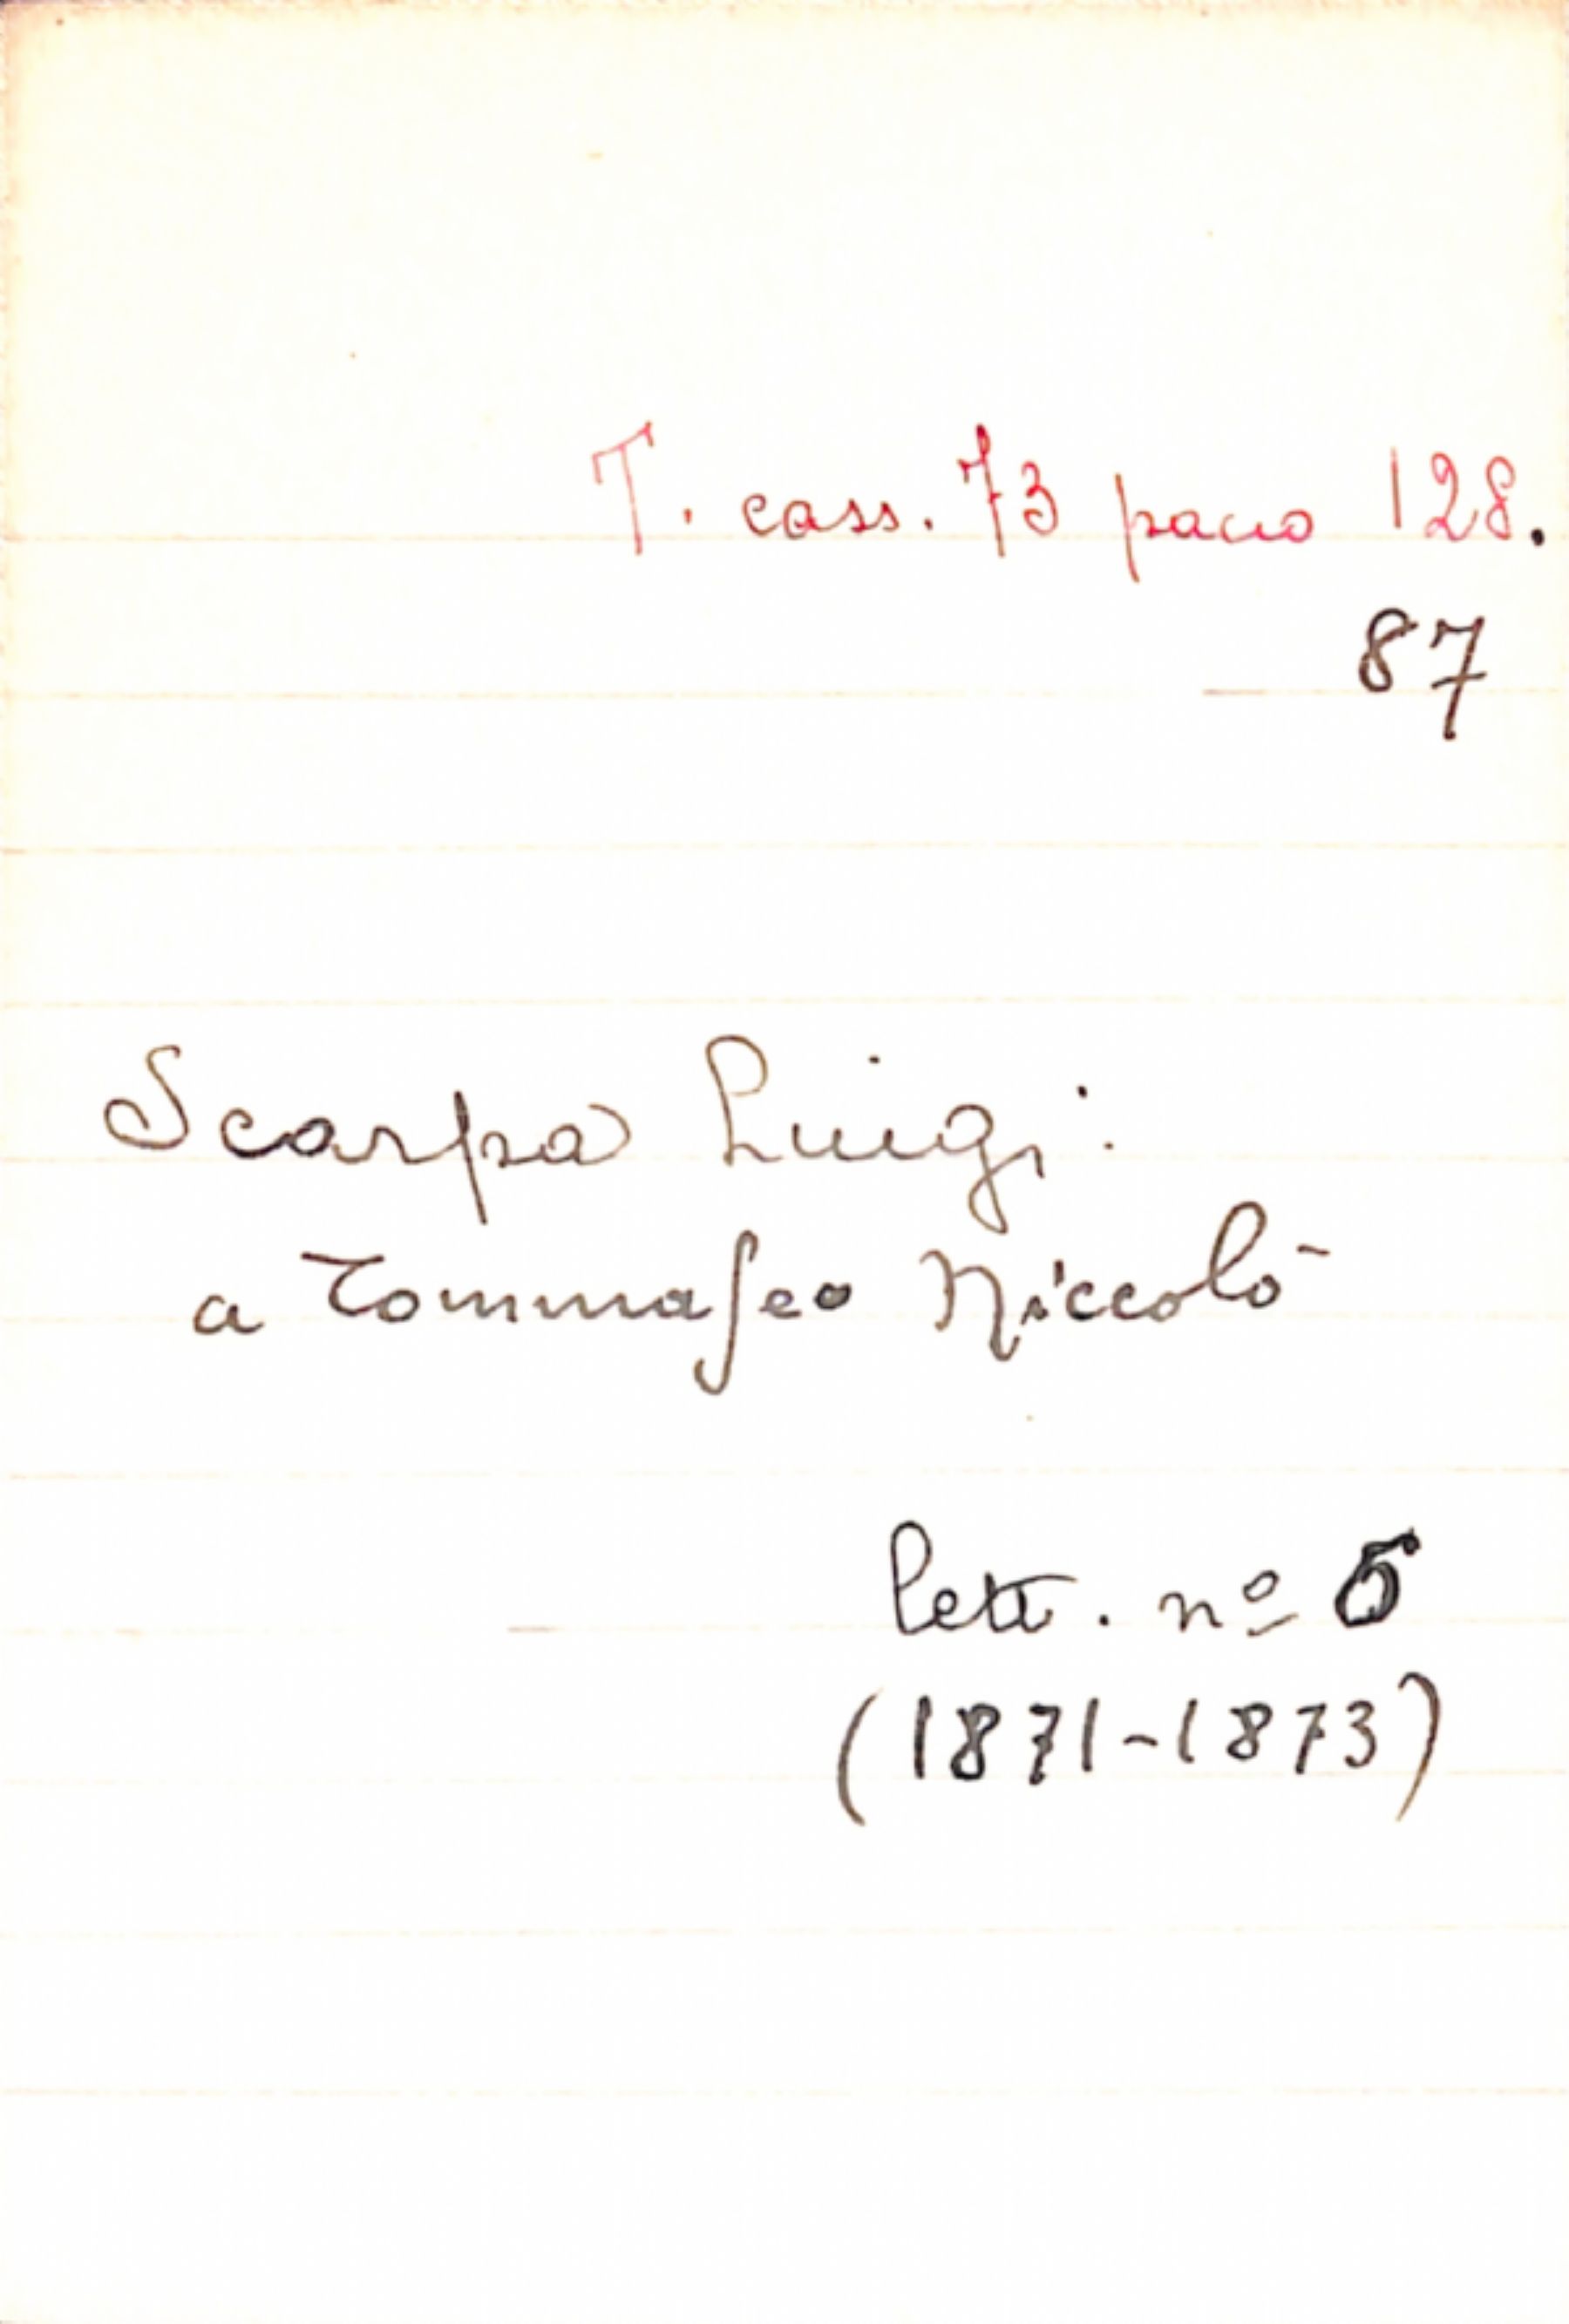 T. cass. 73 pacco 128.
87
Scarpa Luigi:
a Tommaseo Niccolò
lett. nº 5
(1871-1873)